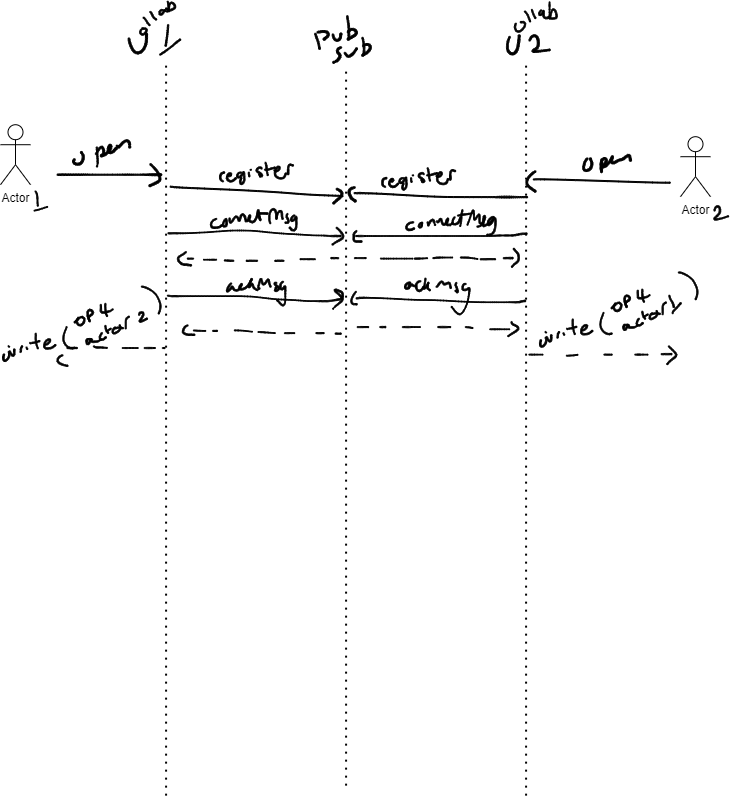 Collab 1
Pub sub
Collab 2
open
open
Actor 1
Actor 2
register
register
connectMsg
connectMsg
ackMsg
ackMsg
write (OP4 actor 2)
write (OP4 actor 1)